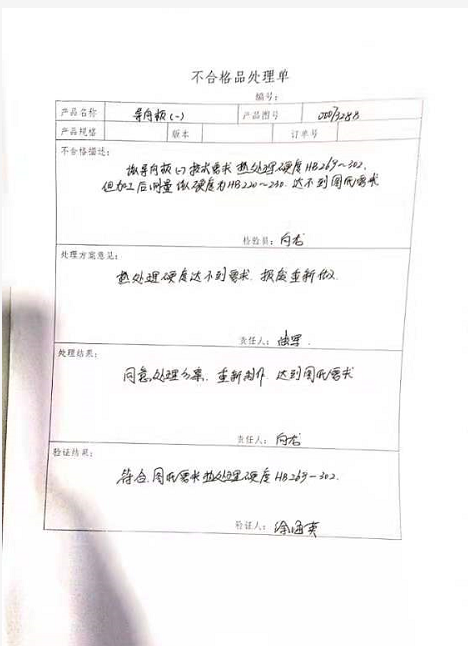 不合格品处理单
编号:
产品名称 导向板(一) 产品图号
产品规格 版本 订单号
不合格描述:
导向板(一)技术要求 热处理硬度HB269~302,
但加工后测量 硬度为HB220~230. 达不到图纸要求
检验员:
处理方案意见:
热处理硬度达不到要求. 报废重新做.
责任人:
处理结果:
同意处理方案. 重新制作. 达到图纸要求
责任人:
验证结果:
符合.图纸要求热处理硬度HB269-302.
验证人: